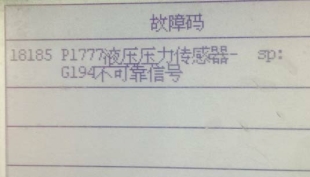 故障码
18185 P1777液压压力传感器- sp:
G194不可靠信号